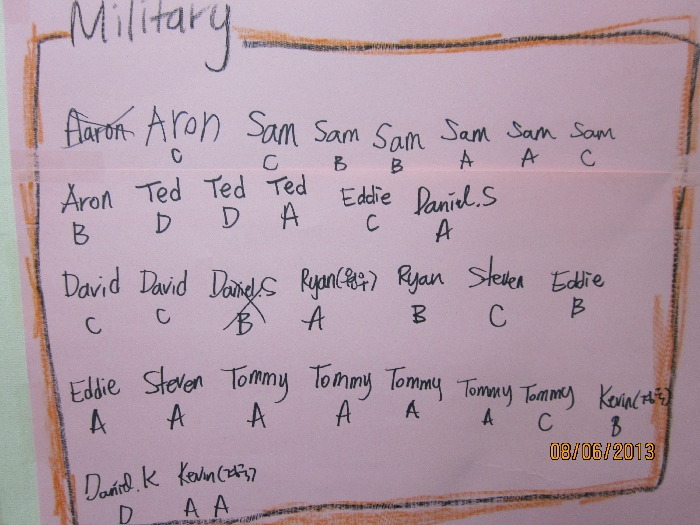 Military
Aaron Aron Sam Sam Sam Sam Sam Sam
C C B B A A C
Aron Ted Ted Ted Eddie Daniel.S
B D D A C A
David David Daniel.S Ryan( ) Ryan Steven Eddie
C C B A B C B
Eddie Steven Tommy Tommy Tommy Tommy Tommy Kevin( )
A A A A A A C B
Daniel.K Kevin( )
D A A
08/06/2013